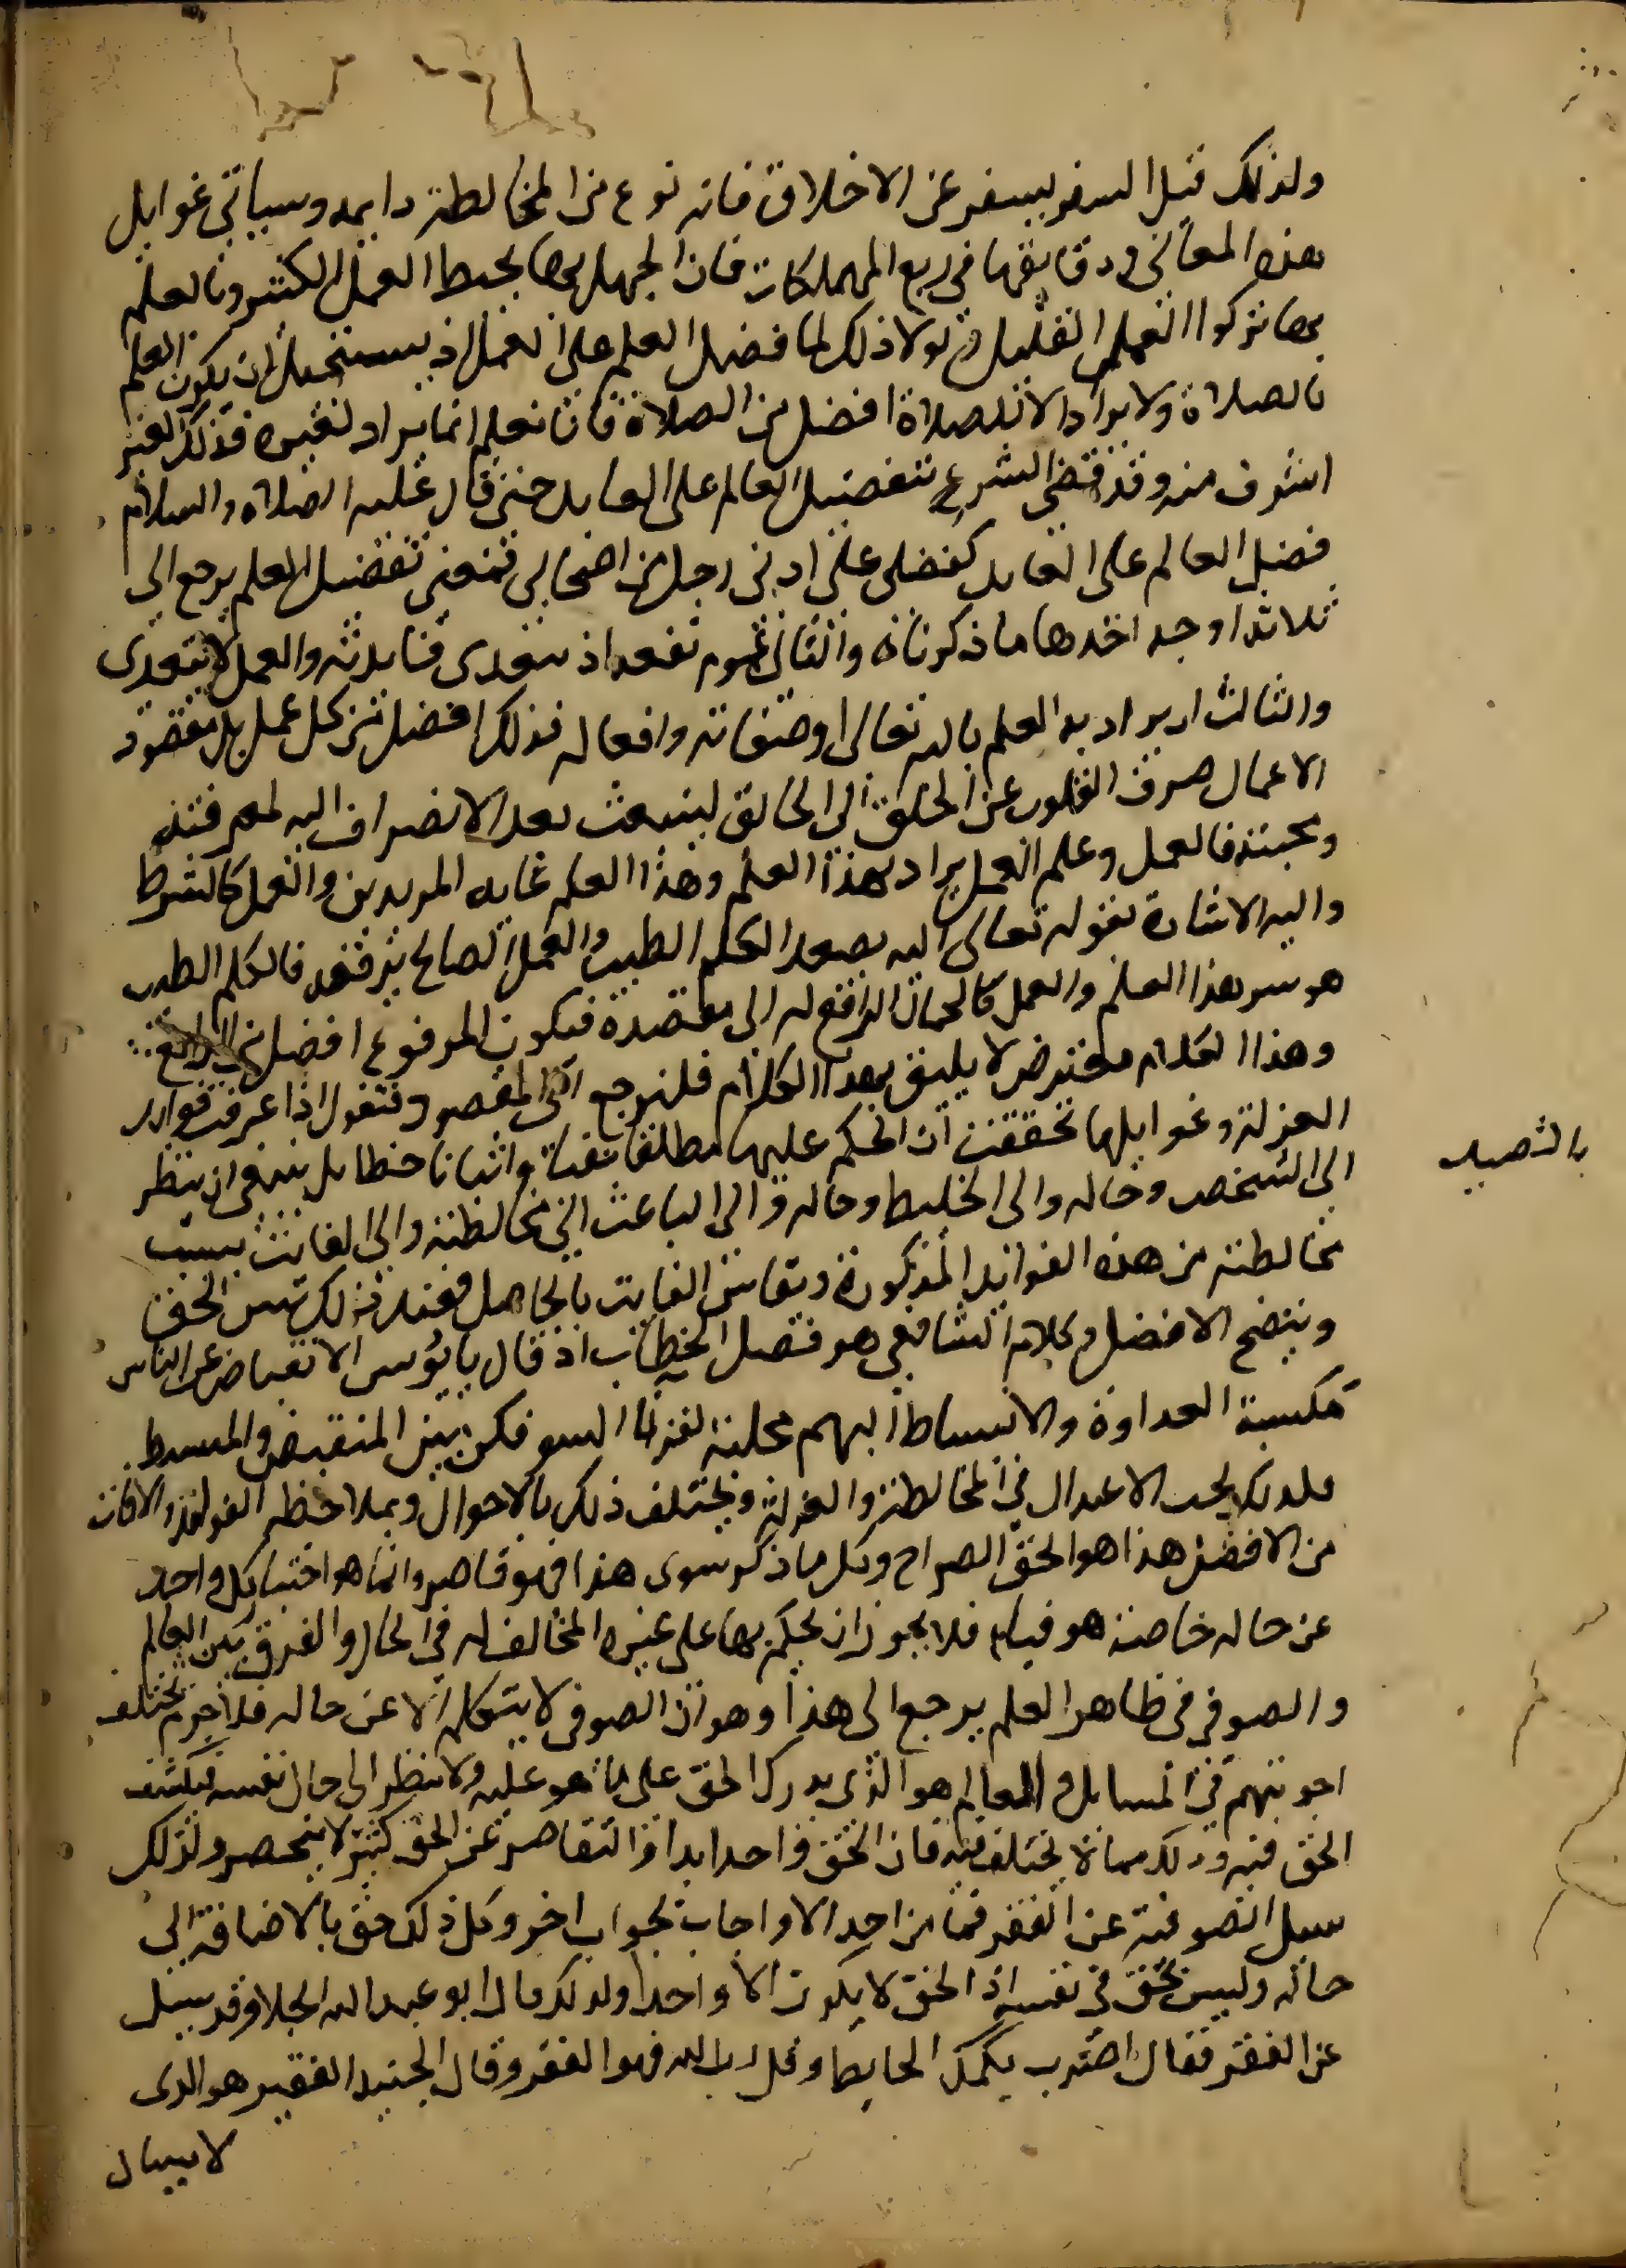 ولذلك قيل السفر يسفر عن الاخلاق فانه نوع من المخالطة دايمه وسياتي غوايل
هذه المعاني ودقايقها في ربع المهلكات فان الجهل بها يحبط العمل الكثير وبالعلم
بها يزكوا العمل القليل ولولا ذلك لما فضل العلم على العمل اذ يستحيل ان يكون العلم
بالصلاة ولا يراد الا للصلاة افضل من الصلاة فانا نعلم انما يراد لغيره فذلك الغير
اشرف منه وقد قضى الشرع بتفضيل العالم على العابد حتى قال عليه الصلاه والسلام
فضل العالم على العابد كفضلي على ادنى رجل من اصحابي فمعنى تفضيل العلم يرجع الى
ثلاثه اوجه احدها ما ذكرناه والثاني عموم نفعه اذ تتعدى فايدته والعمل لا يتعدى
والثالث ان يراد به العلم بالله تعالى وصفاته وافعاله فذلك افضل من كل عمل بل مقصود
الاعمال صرف القلوب عن الخلق الى الخالق لينبعث بعد الانصراف اليه لمعرفته
ومحبته فالعمل وعلم العمل يراد لهذا العلم وهذا العلم غايه المريدين والعمل كالشرط
واليه الاشارة بقوله تعالى اليه يصعد الكلم الطيب والعمل الصالح يرفعه فالكلم الطيب
هو سر هذا العلم والعمل كالحمال الرافع له الى مقصده فيكون المرفوع افضل من الرافع
وهذا الكلام معترض لا يليق بهذا الكلام فلنرجع الى المقصود فنقول اذا عرفت فوايد
العزلة وغوايلها تحققت ان الحكم عليها مطلقا نفيا واثباتا خطا بل ينبغي ان ينظر
الى الشخص وحاله والى الخليط وحاله والى الباعث الى مخالطته والى الفائت بسبب
مخالطته من هذه الفوايد المذكورة ويقاس الفايت بالحاصل فعند ذلك يتبين الحق
ويتضح الافضل وكلام الشافعي هو فصل الخطاب اذ قال يا يونس الانقباض عن الناس
مكسبة العداوة والانبساط اليهم مجلبة لقرنا السو فكن بين المنقبض والمنبسط
فلذلك يجب الاعتدال في المخالطة والعزلة ويختلف ذلك بالاحوال وبملاحظه الفوايد والافات
من الافضل هذا هو الحق الصراح وكل ما ذكر سوى هذا فهو قاصر وانما هو اخبار كل واحد
عن حاله خاصة هو فيها فلا يجوز ان يحكم بها على غيره المخالف له في الحال والفرق بين العالم
والصوفي في ظاهر العلم يرجع الى هذا وهو ان الصوفي لا يتكلم الا عن حاله فلا جرم تختلف
اجوبتهم في المسايل والعالم هو الذي يدرك الحق على ما هو عليه ولا ينظر الى حال نفسه فيكشف
الحق فيه وذلك مما لا يختلف فيه فان الحق واحد ابدا والقاصر عن الحق كثير لا ينحصر ولذلك
سيل الصوفية عن الفقر فما من احد الا واجاب بجواب اخر وكل ذلك حق بالاضافة الى
حاله وليس بحق في نفسه اذ الحق لا يكون الا واحدا ولذلك قال ابو عبد الله الجلا وقد سيل
عن الفقر فقال اضرب بكمك الحايط وقل ربي الله فهو الفقر وقال الجنيد الفقير هو الذي
لا يسال